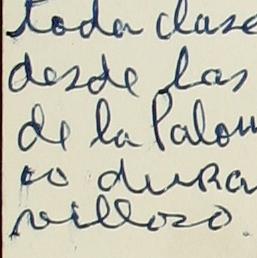 toda clase
desde las
de la Palom
co dura
villoso.